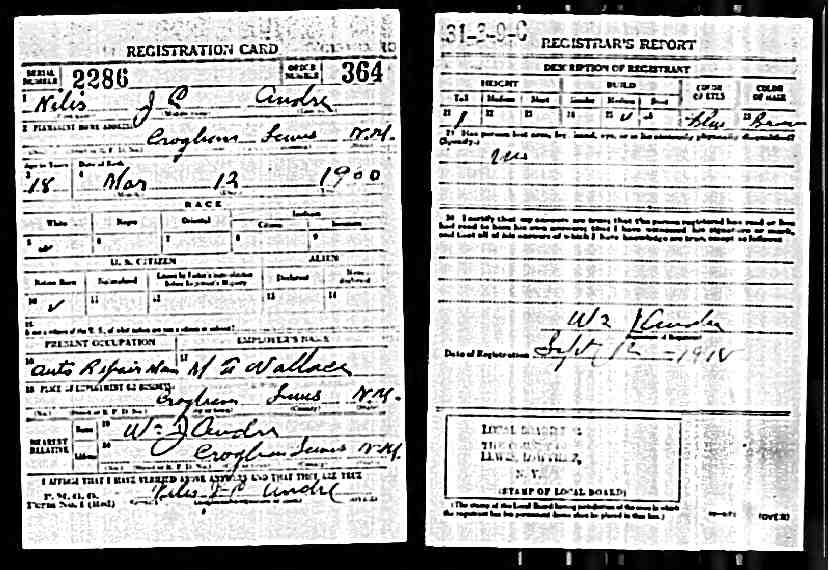 REGISTRATION CARD
SERIAL NUMBER 2286 ORDER NUMBER 364
1 Niles J C Andre
2 PERMANENT HOME ADDRESS
Croghan Lewis N.Y.
Age in Years Date of Birth
3 18 4 Mar 12 1900
RACE
White Negro Oriental Indian
Citizen
5 6 7 8 9
U. S. CITIZEN ALIEN
Native Born Naturalized Citizen by Father's Naturalization Before Registrant's Majority Declarant Non-declarant
10 ✓ 11 12 13 14
15
If not a citizen of the U. S., of what nation are you a citizen or subject?
PRESENT OCCUPATION EMPLOYER'S NAME
16 Auto Repair Man 17 Wallace
18 PLACE OF EMPLOYMENT OR BUSINESS
Croghan Lewis N.Y.
NEAREST RELATIVE Name 19 Wm J Andre
Address 20 Croghan Lewis N.Y.
I AFFIRM THAT I HAVE VERIFIED ABOVE ANSWERS AND THAT THEY ARE TRUE
P. M. G. O.
Form No. 1 (Red) Niles J C Andre (OVER)
31-3-9-C REGISTRAR'S REPORT
DESCRIPTION OF REGISTRANT
HEIGHT BUILD COLOR OF EYES COLOR OF HAIR
Tall Medium Short Slender Medium Stout
21 22 23 24 25 ✓ 26 Blue 28 Brown
29 Has person lost arm, leg, hand, eye, or is he obviously physically disqualified?
(Specify.)
No
30 I certify that my answers are true; that the person registered has read or has
had read to him his own answers; that I have witnessed his signature or mark,
and that all of his answers of which I have knowledge are true, except as follows:
Wm J Andre
Date of Registration Sept 12 - 1918
LOCAL BOARD
THE COUNTY OF
LEWIS, LOWVILLE,
N. Y.
(STAMP OF LOCAL BOARD)
(The stamp of the Local Board having jurisdiction of the area in which
the registrant has his permanent home shall be placed in this box.)
(OVER)